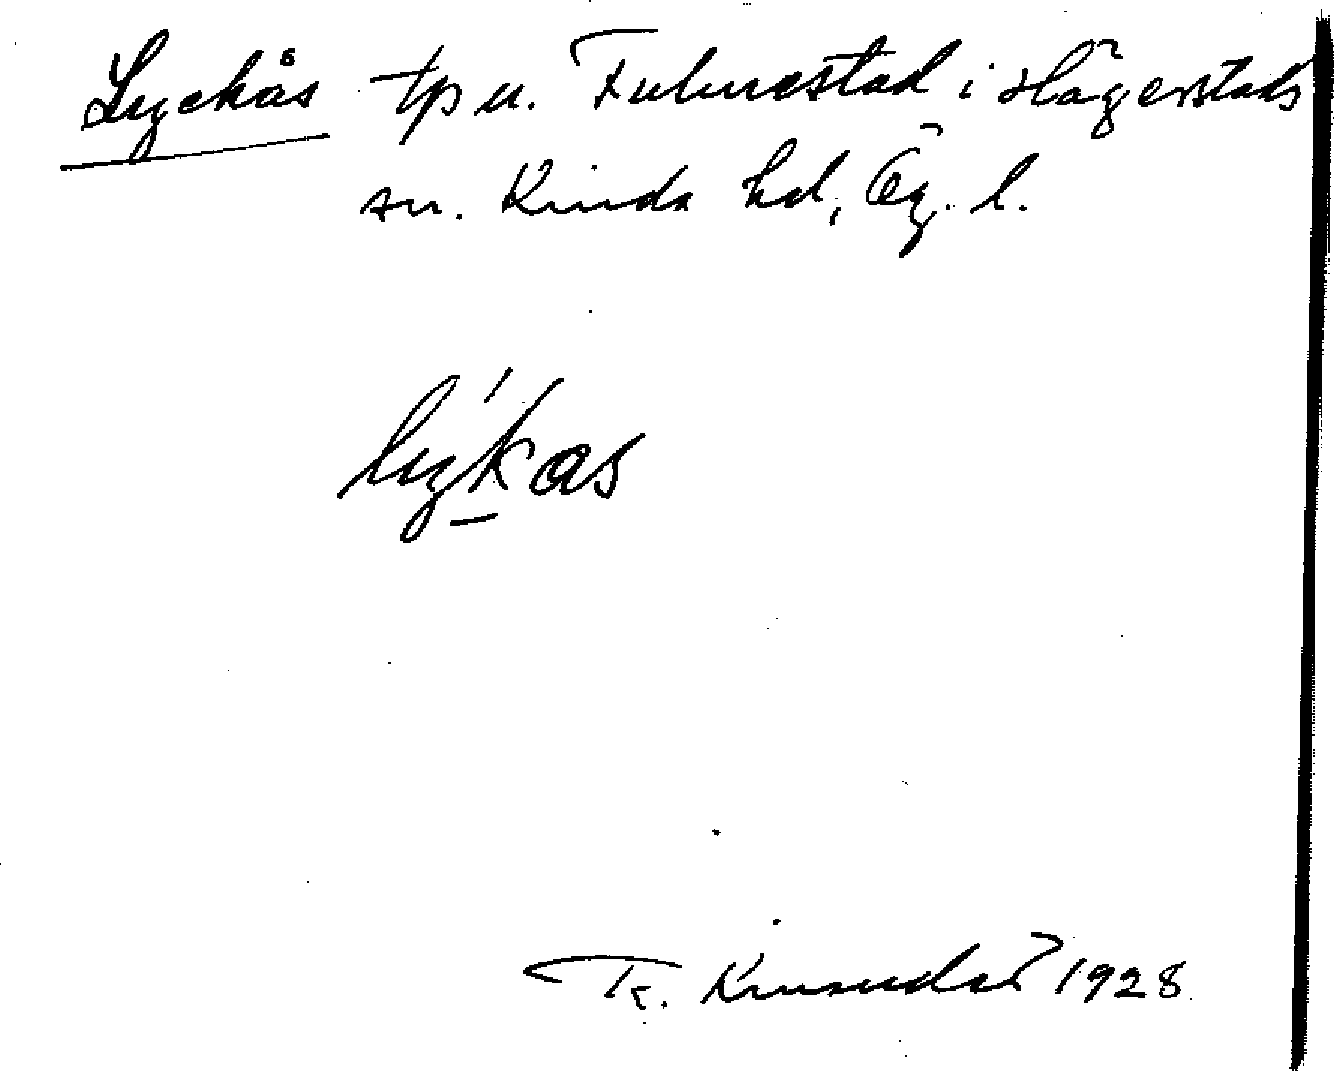 Lyckås tp u. Fulnestad i Hägerstads
sn. Kinda hd, Ög. l.
lýkas
1928